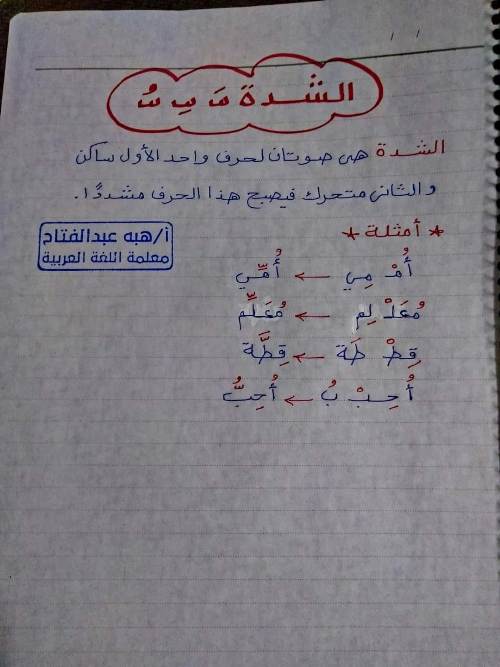 الشدة مَ بِ سُ
الشدة هى صوتان لحرف واحد الأول ساكن
والثانى متحرك فيصبح هذا الحرف مشددًا.
* أمثلة *
أ/هبه عبدالفتاح
معلمة اللغة العربية
أُمْ مِي ← أُمِّي
مُعَلْ لِم ← مُعَلِّم
قِطْ طَة ← قِطَّة
أُحِبْ بُ ← أُحِبُّ